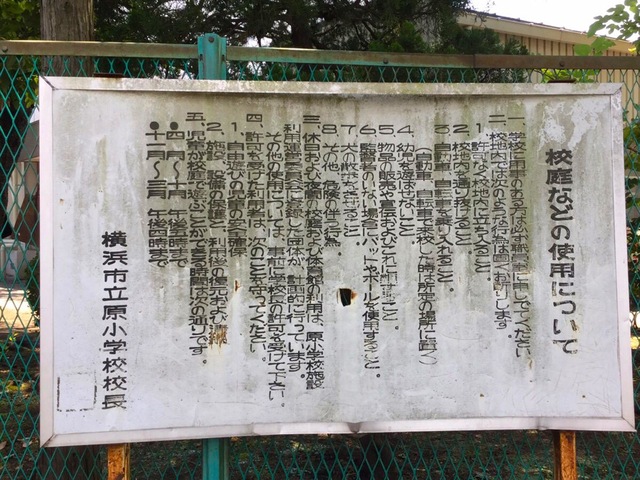 校庭などの使用について
一、学校に用事のある方は必ず職員に申し出てください。
二、校地内では次のような行為は固くお断りします。
1、許可なく校地内に立ち入ること。
2、校地内を通り抜けること。
3、自動車、自転車を乗り入れること。
(自動車、自転車で来校した時は所定の場所に置く)
4、幼児を遊ばせないこと
5、物品の販売や宣伝およびこれに類すること。
6、監督者のいない場合にバット、ボールを使用すること。
7、犬の散歩をすること
8、その他、危険の伴う行為。
三、休日および夜間の校庭および体育館の利用は、原小学校施設
利用運営委員会に登録した団体が、計画的に行っています。
その他の使用については、事前に学校長の許可を受けて下さい。
四、許可を受けた利用者は、次のことを守ってください。
1、自由遊びの児童の安全確保
2、施設、設備の保護と、利用後の復元および清掃
五、児童が校庭で遊ぶことができる時間は次の通りです。
●四月〜十月 午後五時まで
●十一月〜三月 午後四時まで
横浜市立原小学校校長